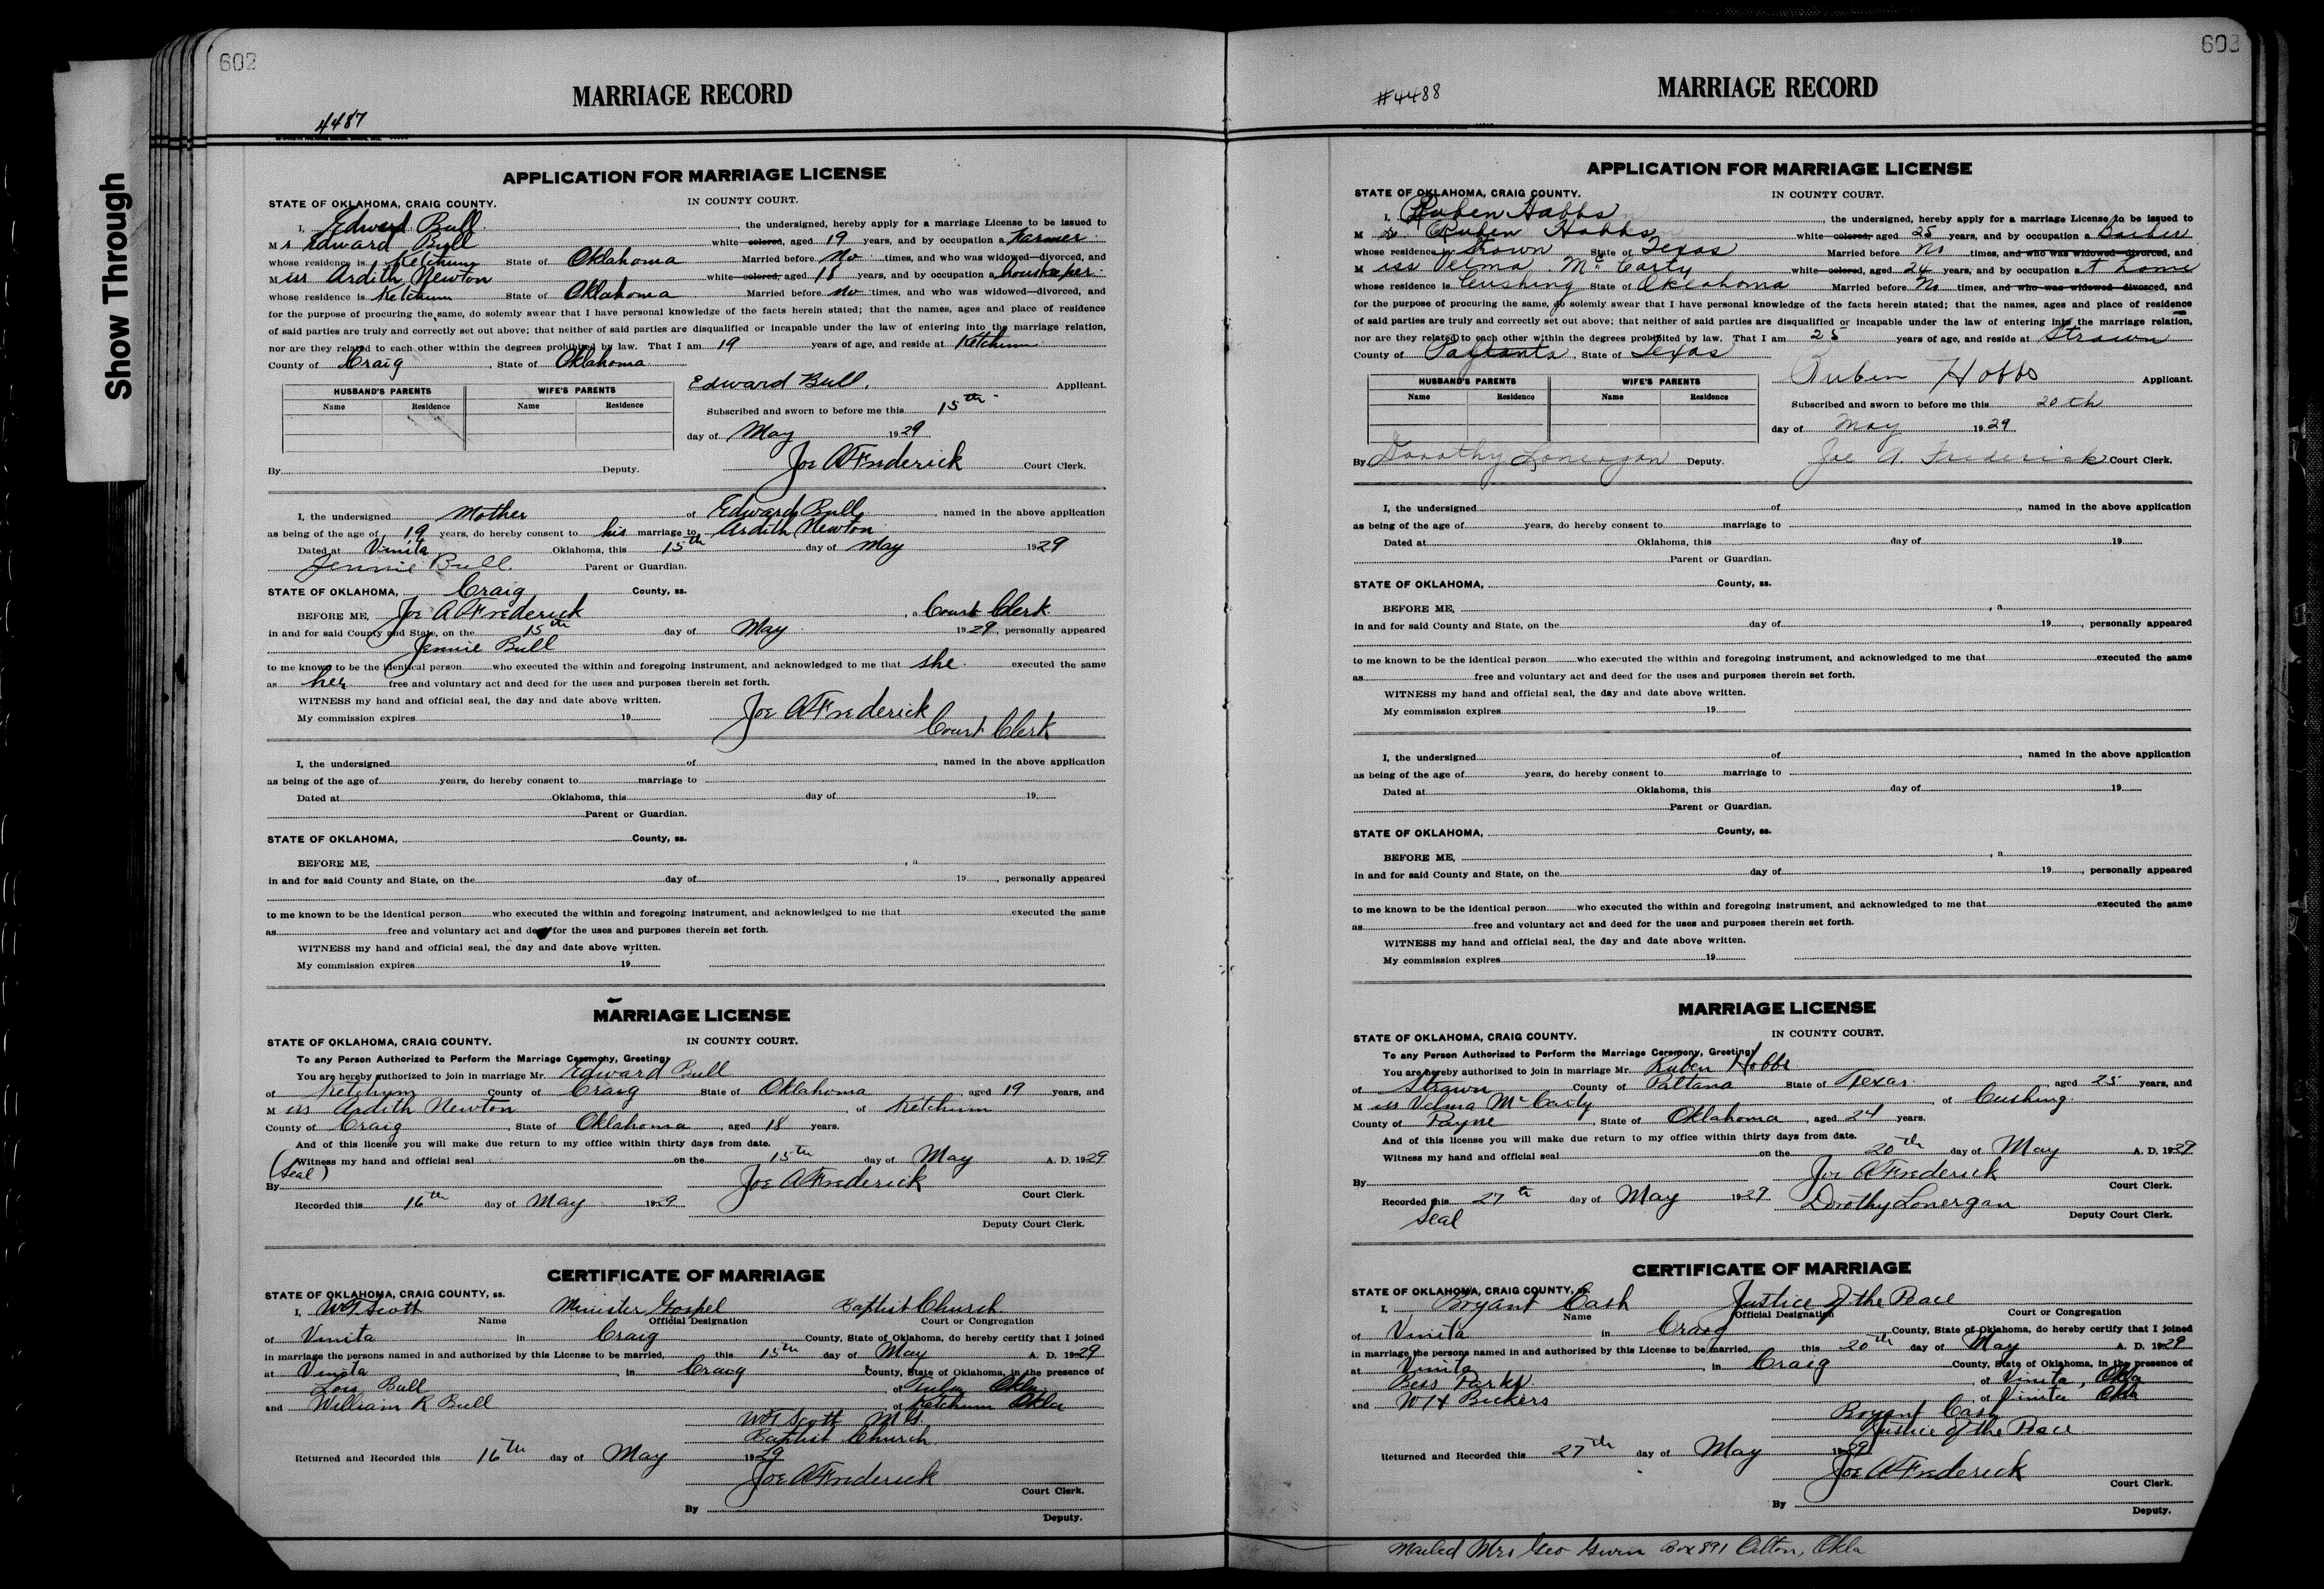 Show Through
602
MARRIAGE RECORD
4487
APPLICATION FOR MARRIAGE LICENSE
STATE OF OKLAHOMA, CRAIG COUNTY. IN COUNTY COURT.
I, Edward Bull, the undersigned, hereby apply for a marriage License to be issued to
Mr Edward Bull white colored, aged 19 years, and by occupation a Farmer
whose residence is Ketchum State of Oklahoma Married before No times, and who was widowed—divorced, and
Miss Ardith Newton white colored, aged 18 years, and by occupation a housekeper
whose residence is Ketchum State of Oklahoma Married before no times, and who was widowed—divorced, and
for the purpose of procuring the same, do solemly swear that I have personal knowledge of the facts herein stated; that the names, ages and place of residence
of said parties are truly and correctly set out above; that neither of said parties are disqualified or incapable under the law of entering into the marriage relation,
nor are they related to each other within the degrees prohibited by law. That I am 19 years of age, and reside at Ketchum
County of Craig, State of Oklahoma
HUSBAND'S PARENTS WIFE'S PARENTS
Name Residence Name Residence
Edward Bull. Applicant.
Subscribed and sworn to before me this 15th
day of May 1929
By Deputy. Joe A Frederick Court Clerk.
I, the undersigned Mother of Edward Bull, named in the above application
as being of the age of 19 years, do hereby consent to his marriage to Ardith Newton
Dated at Vinita Oklahoma, this 15th day of May 1929
Jennie Bull. Parent or Guardian.
STATE OF OKLAHOMA, Craig County, ss.
BEFORE ME, Joe A Frederick, a Court Clerk
in and for said County and State, on the 15th day of May 1929, personally appeared
Jennie Bull
to me known to be the identical person who executed the within and foregoing instrument, and acknowledged to me that she executed the same
as her free and voluntary act and deed for the uses and purposes therein set forth.
WITNESS my hand and official seal, the day and date above written.
My commission expires 19 Joe A Frederick
Court Clerk
I, the undersigned of, named in the above application
as being of the age of years, do hereby consent to marriage to
Dated at Oklahoma, this day of 19
Parent or Guardian.
STATE OF OKLAHOMA, County, ss.
BEFORE ME, , a
in and for said County and State, on the day of 19, personally appeared
to me known to be the identical person who executed the within and foregoing instrument, and acknowledged to me that executed the same
as free and voluntary act and deed for the uses and purposes therein set forth.
WITNESS my hand and official seal, the day and date above written.
My commission expires 19
MARRIAGE LICENSE
STATE OF OKLAHOMA, CRAIG COUNTY. IN COUNTY COURT.
To any Person Authorized to Perform the Marriage Ceremony, Greeting:
You are hereby authorized to join in marriage Mr. Edward Bull
of Ketchum County of Craig State of Oklahoma, aged 19 years, and
Miss Ardith Newton, of Ketchum
County of Craig, State of Oklahoma, aged 18 years.
And of this license you will make due return to my office within thirty days from date.
Witness my hand and official seal on the 15th day of May A. D. 1929
(Seal)
By Joe A Frederick Court Clerk.
Recorded this 16th day of May 1929
Deputy Court Clerk.
CERTIFICATE OF MARRIAGE
STATE OF OKLAHOMA, CRAIG COUNTY, ss.
I, WT Scott Minister Gospel Baptist Church
Name Official Designation Court or Congregation
of Vinita in Craig County, State of Oklahoma, do hereby certify that I joined
in marriage the persons named in and authorized by this License to be married, this 15th day of May A. D. 1929
at Vinita, in Craig County, State of Oklahoma, in the presence of
Lois Bull of Tulsa Okla
and William R Bull of Ketchum Okla
WT Scott M G
Baptist Church
Returned and Recorded this 16th day of May 1929
Joe A Frederick
Court Clerk.
By
Deputy.
603
MARRIAGE RECORD
#4488
APPLICATION FOR MARRIAGE LICENSE
STATE OF OKLAHOMA, CRAIG COUNTY. IN COUNTY COURT.
I, Ruben Hobbs, the undersigned, hereby apply for a marriage License to be issued to
Mr. Ruben Hobbs white colored, aged 25 years, and by occupation a Barber
whose residence is Strawn State of Texas Married before No times, and who was widowed—divorced, and
Miss Velma McCarty white colored, aged 24 years, and by occupation at home
whose residence is Cushing State of Oklahoma Married before No times, and who was widowed—divorced, and
for the purpose of procuring the same, do solemly swear that I have personal knowledge of the facts herein stated; that the names, ages and place of residence
of said parties are truly and correctly set out above; that neither of said parties are disqualified or incapable under the law of entering into the marriage relation,
nor are they related to each other within the degrees prohibited by law. That I am 25 years of age, and reside at Strawn
County of, State of Texas
HUSBAND'S PARENTS WIFE'S PARENTS
Name Residence Name Residence
Ruben Hobbs Applicant.
Subscribed and sworn to before me this 20th
day of May 1929
By Dorothy Lonergan Deputy. Joe A. Frederick Court Clerk.
I, the undersigned of, named in the above application
as being of the age of years, do hereby consent to marriage to
Dated at Oklahoma, this day of 19
Parent or Guardian.
STATE OF OKLAHOMA, County, ss.
BEFORE ME, , a
in and for said County and State, on the day of 19, personally appeared
to me known to be the identical person who executed the within and foregoing instrument, and acknowledged to me that executed the same
as free and voluntary act and deed for the uses and purposes therein set forth.
WITNESS my hand and official seal, the day and date above written.
My commission expires 19
I, the undersigned of, named in the above application
as being of the age of years, do hereby consent to marriage to
Dated at Oklahoma, this day of 19
Parent or Guardian.
STATE OF OKLAHOMA, County, ss.
BEFORE ME, , a
in and for said County and State, on the day of 19, personally appeared
to me known to be the identical person who executed the within and foregoing instrument, and acknowledged to me that executed the same
as free and voluntary act and deed for the uses and purposes therein set forth.
WITNESS my hand and official seal, the day and date above written.
My commission expires 19
MARRIAGE LICENSE
STATE OF OKLAHOMA, CRAIG COUNTY. IN COUNTY COURT.
To any Person Authorized to Perform the Marriage Ceremony, Greeting:
You are hereby authorized to join in marriage Mr. Ruben Hobbs
of Strawn County of Paltana State of Texas, aged 25 years, and
Miss Velma McCarty, of Cushing
County of Payne, State of Oklahoma, aged 24 years.
And of this license you will make due return to my office within thirty days from date.
Witness my hand and official seal on the 20th day of May A. D. 1929
By Joe A Frederick Court Clerk.
Recorded this 27th day of May 1929 Dorothy Lonergan
Seal Deputy Court Clerk.
CERTIFICATE OF MARRIAGE
STATE OF OKLAHOMA, CRAIG COUNTY, ss.
I, Bryant Cash Justice of the Peace
Name Official Designation Court or Congregation
of Vinita in Craig County, State of Oklahoma, do hereby certify that I joined
in marriage the persons named in and authorized by this License to be married, this 20th day of May A. D. 1929
at Vinita, in Craig County, State of Oklahoma, in the presence of
Bess Parks of Vinita, Okla
and W H Bickers of Vinita Okla
Bryant Cash
Justice of the Peace
Returned and Recorded this 27th day of May 1929
Joe A Frederick
Court Clerk.
By
Deputy.
Mailed Mrs Geo Box 891 Okla